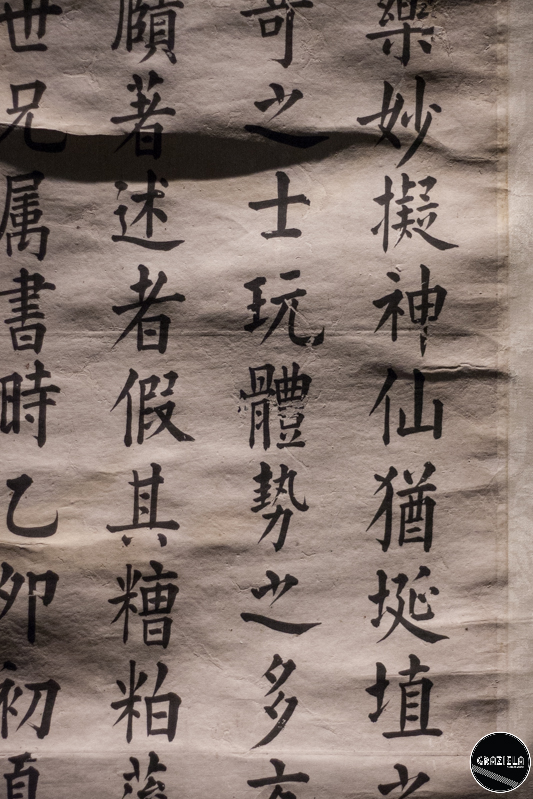 樂妙擬神仙猶埏埴之
奇之士玩體勢之多方
願著述者假其糟粕藻
世兄属書時乙卯初夏
GRAZIELA